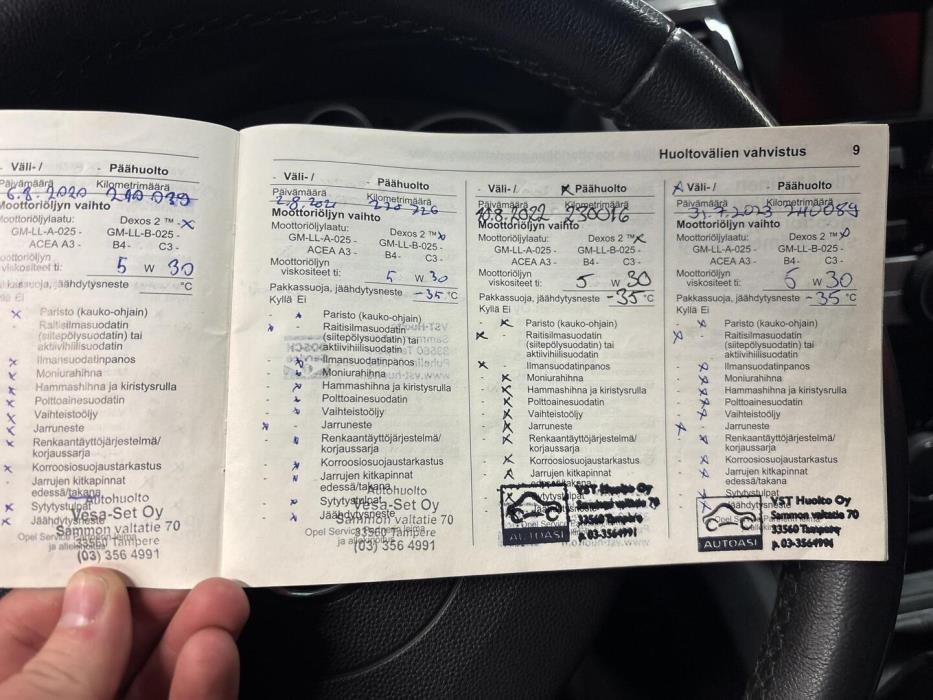 Huoltovälien vahvistus 9
- Väli- / - Päähuolto
Päivämäärä Kilometrimäärä
6.8.2020 210 039
Moottoriöljyn vaihto
Moottoriöljylaatu: Dexos 2 ™ -x
GM-LL-A-025 - GM-LL-B-025 -
ACEA A3 - B4- C3 -
Moottoriöljyn
viskositeet ti: 5 W 30
Pakkassuoja, jäähdytysneste °C
Kyllä Ei
x Paristo (kauko-ohjain)
Raitisilmasuodatin
(siitepölysuodatin) tai
aktiivihiilisuodatin
x Ilmansuodatinpanos
x Moniurahihna
x Hammashihna ja kiristysrulla
x Polttoainesuodatin
x Vaihteistoöljy
x Jarruneste
Renkaantäyttöjärjestelmä/
korjaussarja
x Korroosiosuojaustarkastus
Jarrujen kitkapinnat
edessä/takana
x Sytytystulpat
x Jäähdytysneste
Autohuolto
Vesa-Set Oy
Sammon valtatie 70
33560 Tampere
(03) 356 4991
- Väli- / - Päähuolto
Päivämäärä Kilometrimäärä
2.8.2021 220 226
Moottoriöljyn vaihto
Moottoriöljylaatu: Dexos 2 ™ x
GM-LL-A-025 - GM-LL-B-025 -
ACEA A3 - B4- C3 -
Moottoriöljyn
viskositeet ti: 5 W 30
Pakkassuoja, jäähdytysneste -35 °C
Kyllä Ei
- x Paristo (kauko-ohjain)
x - Raitisilmasuodatin
(siitepölysuodatin) tai
aktiivihiilisuodatin
- x Ilmansuodatinpanos
- x Moniurahihna
- x Hammashihna ja kiristysrulla
- x Polttoainesuodatin
- x Vaihteistoöljy
x - Jarruneste
- x Renkaantäyttöjärjestelmä/
korjaussarja
- x Korroosiosuojaustarkastus
- x Jarrujen kitkapinnat
edessä/takana
- x Sytytystulpat
- x Jäähdytysneste
Autohuolto
Vesa-Set Oy
Sammon valtatie 70
33560 Tampere
(03) 356 4991
- Väli- / x Päähuolto
Päivämäärä Kilometrimäärä
10.8.2022 230016
Moottoriöljyn vaihto
Moottoriöljylaatu: Dexos 2 ™ x
GM-LL-A-025 - GM-LL-B-025 -
ACEA A3 - B4- C3 -
Moottoriöljyn
viskositeet ti: 5 W 30
Pakkassuoja, jäähdytysneste -35 °C
Kyllä Ei
- x Paristo (kauko-ohjain)
x - Raitisilmasuodatin
(siitepölysuodatin) tai
aktiivihiilisuodatin
x - Ilmansuodatinpanos
- x Moniurahihna
- x Hammashihna ja kiristysrulla
- x Polttoainesuodatin
- x Vaihteistoöljy
- x Jarruneste
- x Renkaantäyttöjärjestelmä/
korjaussarja
- x Korroosiosuojaustarkastus
- x Jarrujen kitkapinnat
edessä/takana
Sytytystulpat
AUTOASI
VST Huolto Oy
Sammon valtatie 70
33560 Tampere
p. 03-3564991
x Väli- / - Päähuolto
Päivämäärä Kilometrimäärä
31.7.2023 240089
Moottoriöljyn vaihto
Moottoriöljylaatu: Dexos 2 ™ x
GM-LL-A-025 - GM-LL-B-025 -
ACEA A3 - B4- C3 -
Moottoriöljyn
viskositeet ti: 5 W 30
Pakkassuoja, jäähdytysneste -35 °C
Kyllä Ei
- x Paristo (kauko-ohjain)
x - Raitisilmasuodatin
(siitepölysuodatin) tai
aktiivihiilisuodatin
- x Ilmansuodatinpanos
- x Moniurahihna
- x Hammashihna ja kiristysrulla
- x Polttoainesuodatin
- x Vaihteistoöljy
x - Jarruneste
- x Renkaantäyttöjärjestelmä/
korjaussarja
- x Korroosiosuojaustarkastus
- x Jarrujen kitkapinnat
edessä/takana
- x Sytytystulpat
AUTOASI
VST Huolto Oy
Sammon valtatie 70
33560 Tampere
p. 03-3564991